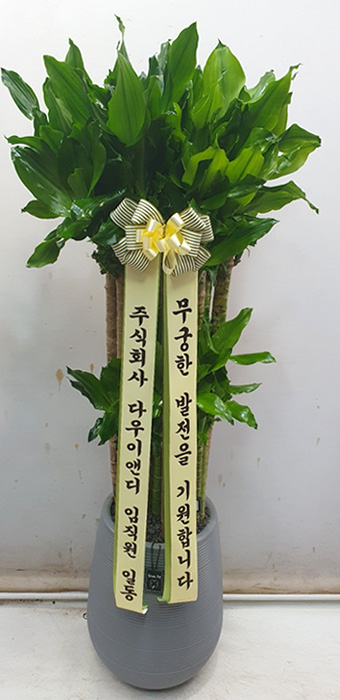 무궁한 발전을 기원합니다
주식회사 다우이앤디 임직원 일동